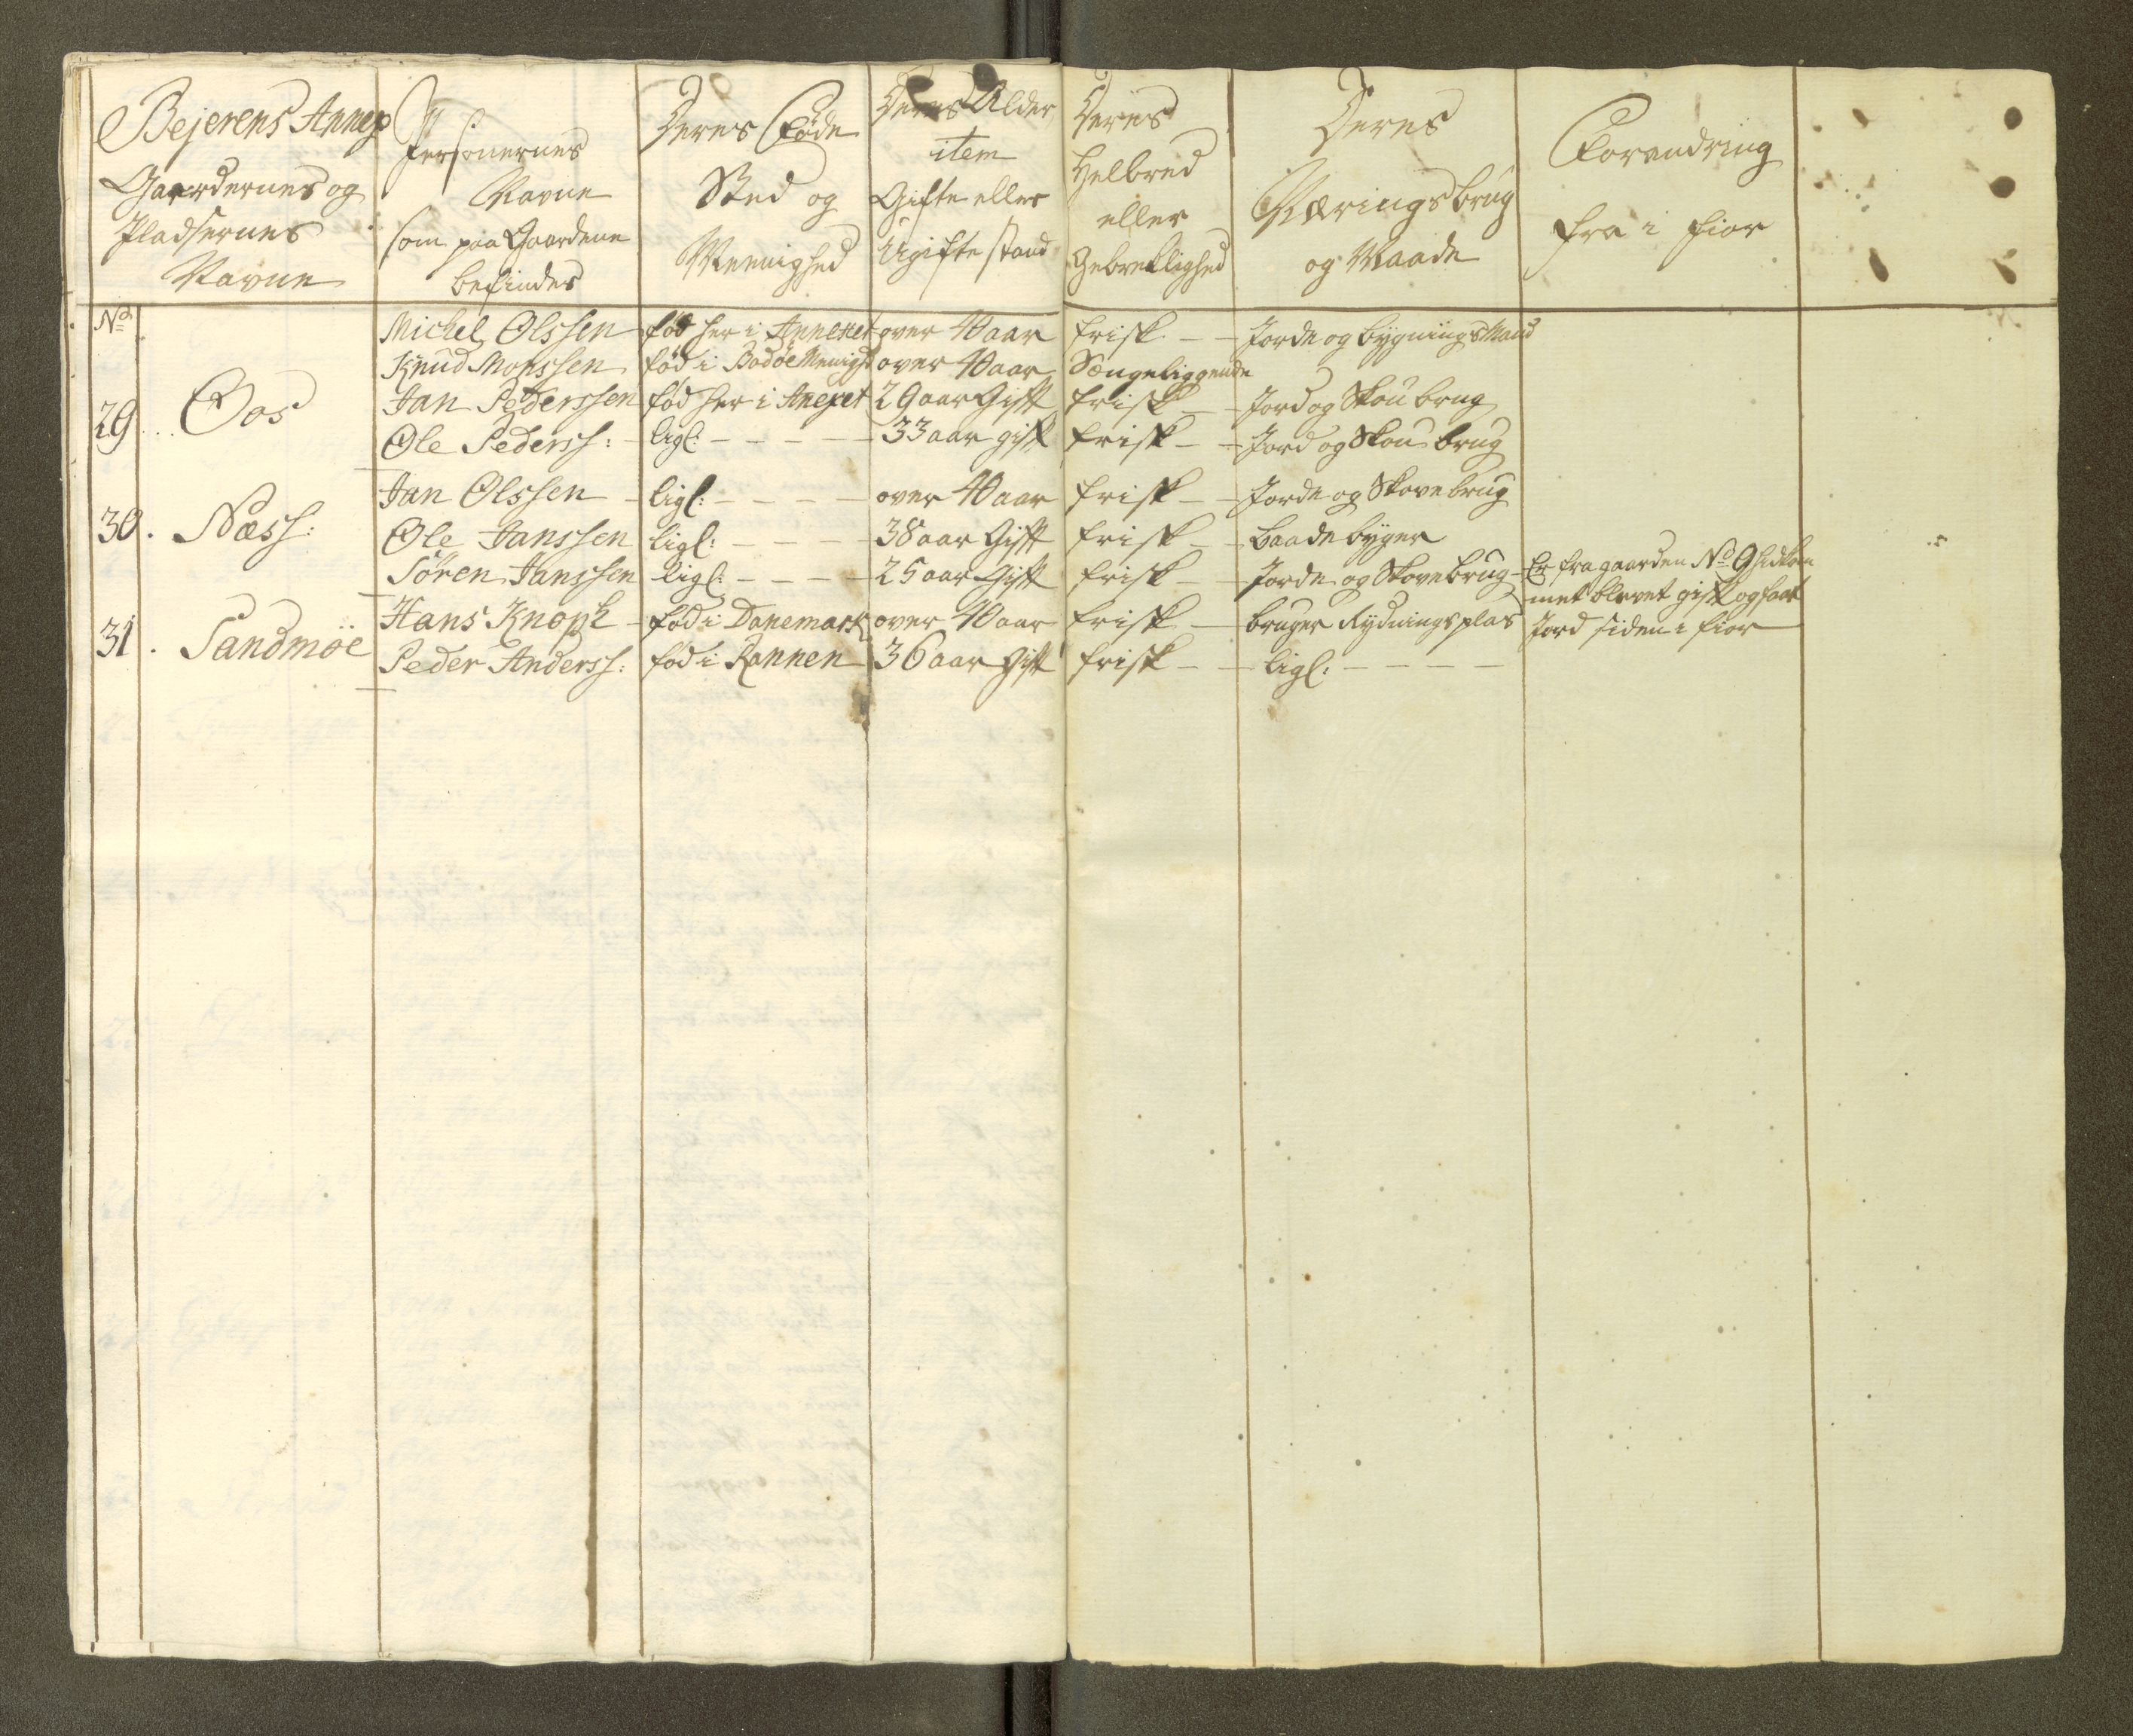 Bejerens Annex
Gaardernes og
Pladsernes
Navne
Personernes
Navne
som paa Gaardene
befindes
Deres Føde
Sted og
Meenighed
Deres Alder
item
Gifte eller
Ugifte stand
Deres
Helbred
eller
Gebreklighed
Deres
Næringsbrug
og Maade
Forandring
fra i fior
No
Michel Olssen fød her i Annexet over 40 aar frisk Jorde og bygnings Mand
Knud Monssen fød i Bodøe Menigh over 40 aar Sængeliggende
29 Oos
Jan Pederssen fød her i Anexet 29 aar Gift frisk Jord og Skou brug
Ole Pederss: ligl: 33 aar gift frisk Jord og Skou brug
30. Næss:
Jan Olssen ligl: over 40 aar frisk Jorde og Skove brug
Ole Janssen ligl: 38 aar Gift frisk baade byger
Søren Hanssen ligl: 25 aar Gift frisk Jorde og Skove brug Er fra gaarden No 9
met blevet gift og faat
Jord siden i fior
31. Sandmöe
Hans Knoph fød i Danemark over 40 aar frisk bruger Rydnings plas
Peder Anderss: fød i Rannen 36 aar Gift frisk ligl: